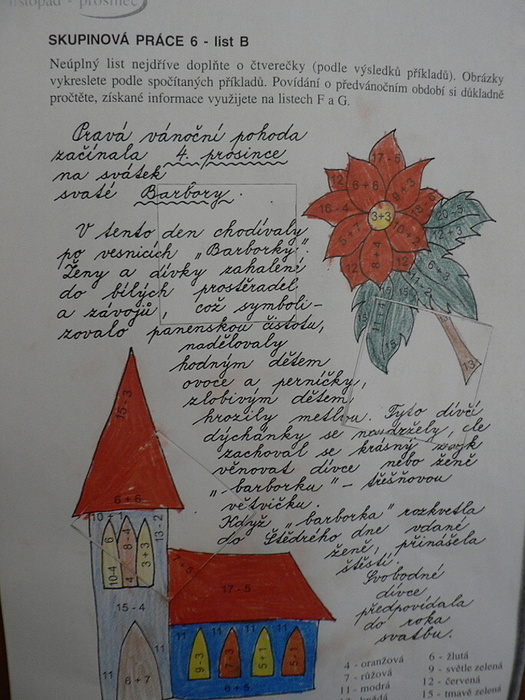 listopad - prosinec
SKUPINOVÁ PRÁCE 6 - list B
Neúplný list nejdříve doplňte o čtverečky (podle výsledků příkladů). Obrázky
vykreslete podle spočítaných příkladů. Povídání o předvánočním období si důkladně
pročtěte, získané informace využijete na listech F a G.
Pravá vánoční pohoda
začínala 4. prosince
na svátek
svaté Barbory.
V tento den chodívaly
po vesnicích „Barborky".
Ženy a dívky zahalené
do bílých prostěradel
a závojů, což symboli-
zovalo panenskou čistotu,
nadělovaly
hodným dětem
ovoce a perníčky,
zlobivým dětem
hrozily metlou. Tyto dívčí
dýchánky se neudržely, ale
zachoval se krásný zvyk
věnovat dívce nebo ženě
„barborku" - třešňovou
větvičku.
Když „barborka" rozkvetla
do Štědrého dne vdané
ženě, přinášela
štěstí.
Svobodné
dívce
předpovídala
do roka
svatbu.
17-5
6+6
9+3
16-4
3+3
10+2
5+7
8+4
12
12
12
20-5
12+3
6+3
13
15-3
6+6
10+1
13-2
6
8-4
3+3
10-4
4
15-4
6+7
11
7+5
17-5
11
11
11
11
9-3
7-3
5+1
5-1
6+5
4 - oranžová
7 - růžová
11 - modrá
6 - žlutá
9 - světle zelená
12 - červená
15 - tmavě zelená